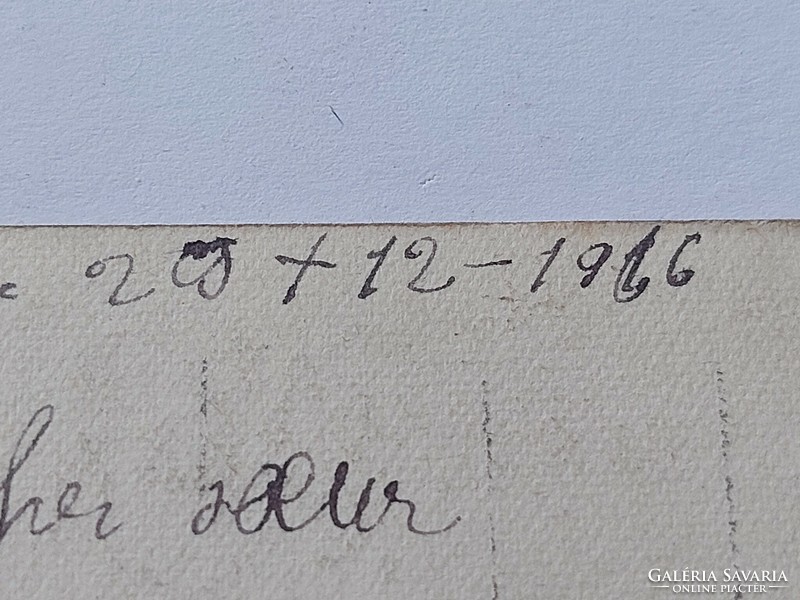 + 12 - 1916
sœur
GALÉRIA SAVARIA
ONLINE PIACTÉR